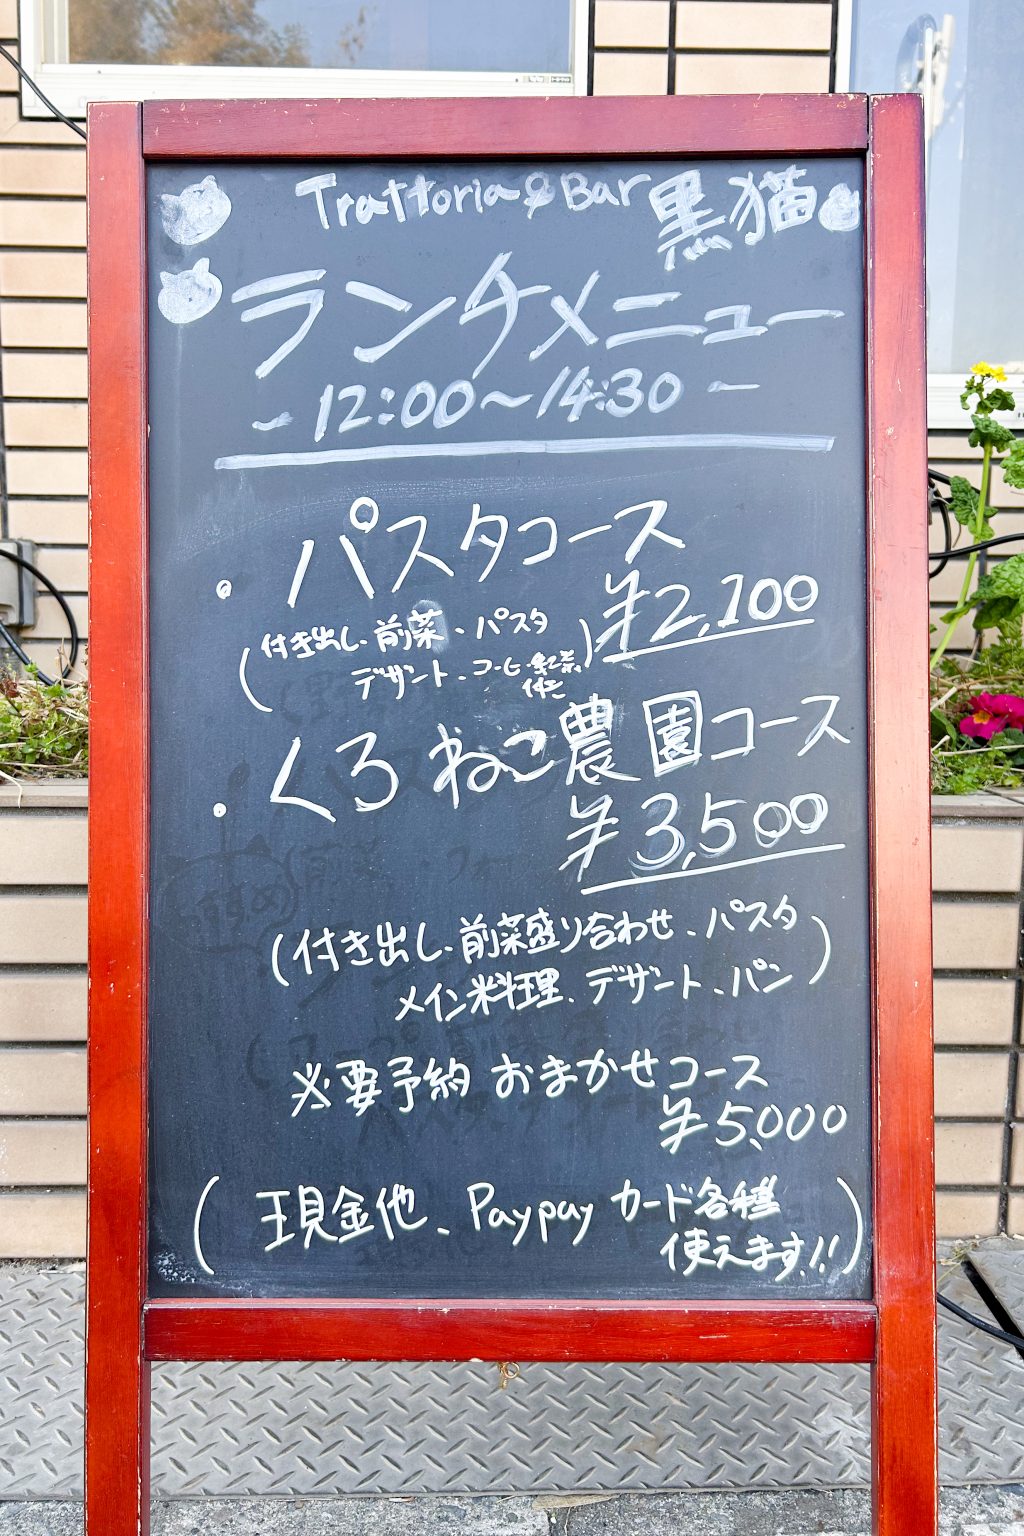 Trattoria & Bar 黒猫
ランチメニュー
- 12:00〜14:30 -
・パスタコース
¥2,100
(付き出し、前菜、パスタ
デザート、コーヒ・紅茶
付き)
・くろねこ農園コース
¥3,500
(付き出し、前菜盛り合わせ、パスタ
メイン料理、デザート、パン)
※要予約 おまかせコース
¥5,000
(現金他、Paypay カード各種
使えます!!)